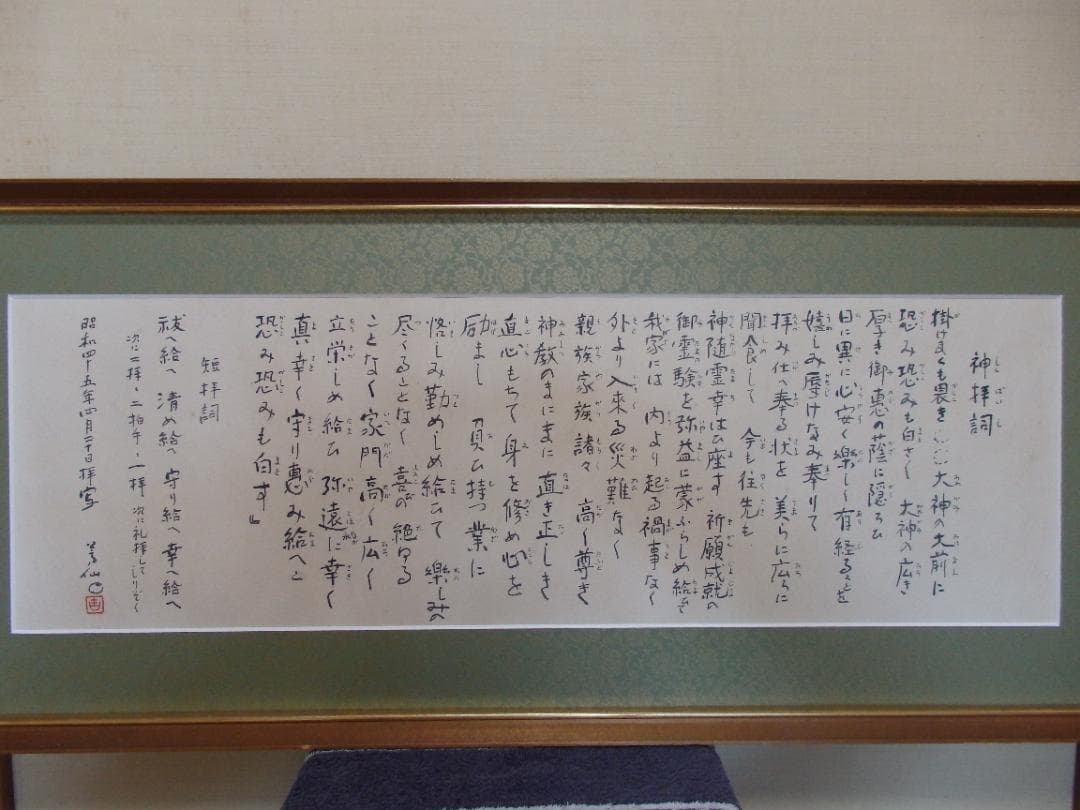 神拝詞
掛けまくも畏き〇〇大神の大前に
恐み恐みも白さく 大神の広き
厚き御恵の蔭に隠ろひ
日に異に心安く楽しく有経ることを
嬉しみ辱けなみ奉りて
拝み仕へ奉る状を 美らに広らに
聞食して 今も往先も
神随霊幸はひ座す 祈願成就の
御霊験を弥益に蒙ふらしめ給ひて
我家には 内より起る禍事なく
外より入来る災難なく
親族家族諸々 高く尊き
神教のまにまに 直き正しき
直心もちて 身を修め心を
励まし 負ひ持つ業に
恪しみ勤めしめ給ひて 楽しみの
尽くることなく 喜びの絶ゆる
ことなく 家門 高く広く
立栄しめ給ひ 弥遠に幸く
真幸く守り恵み給へと
恐み恐みも白す』
短拝詞
祓へ給へ 清め給へ 守り給へ 幸へ給へ
次に二拝、二拍手、一拝 次に礼拝してしりぞく
昭和四十五年四月二十日拝写